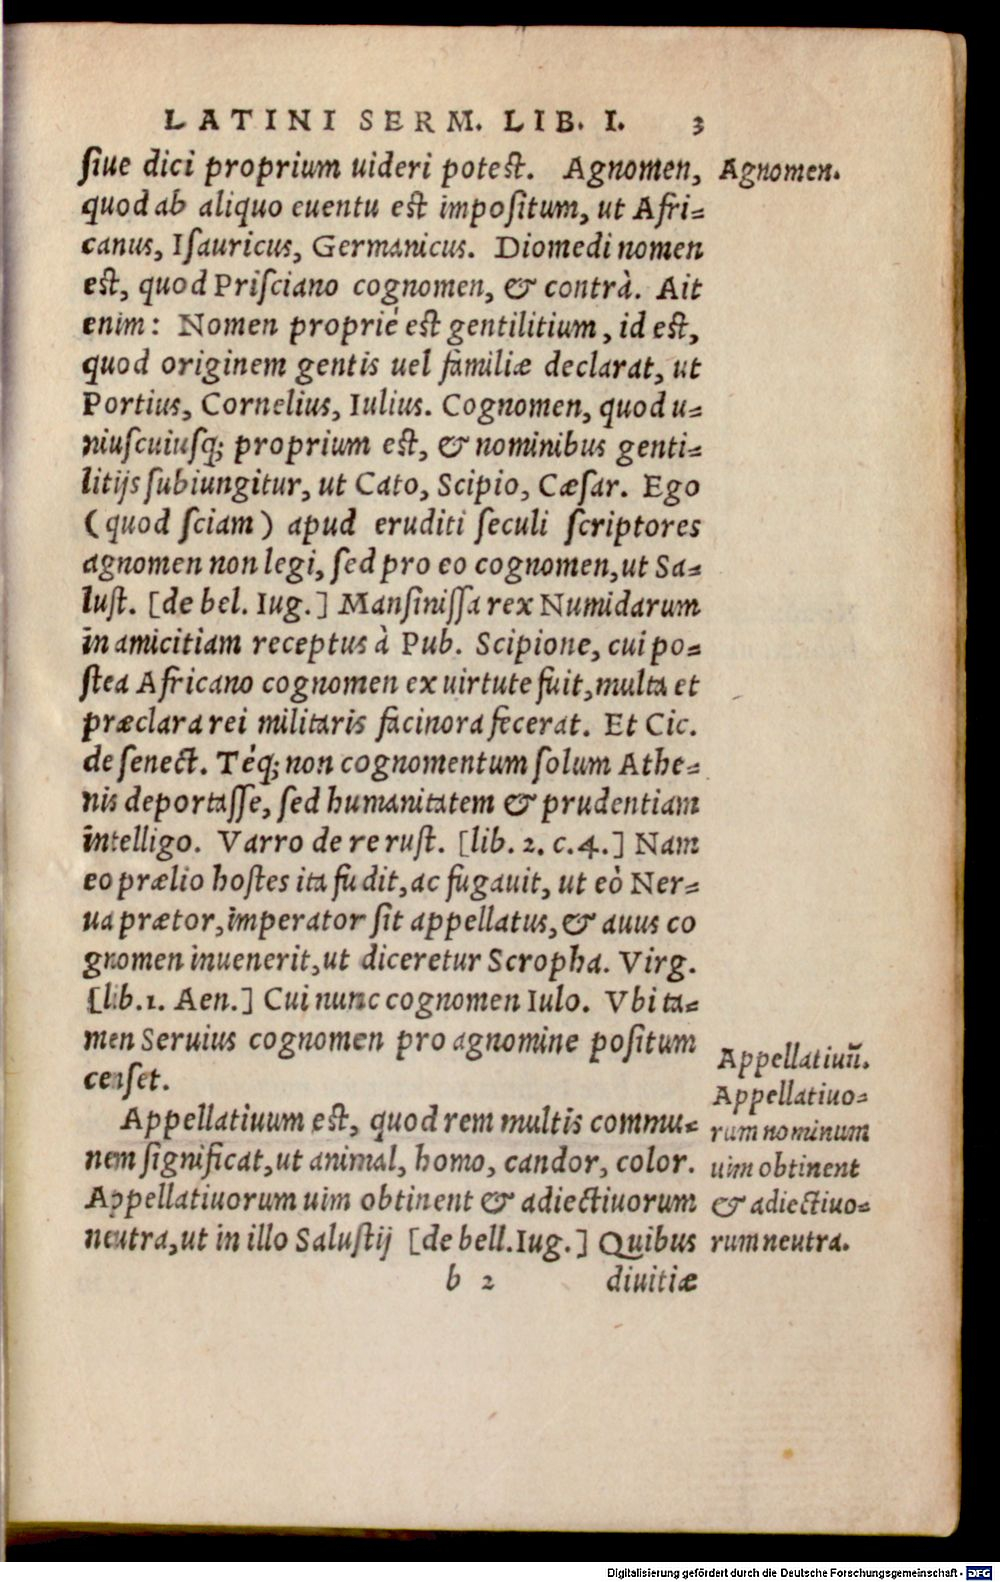 LATINI SERM. LIB. I. 3
ſiue dici proprium uideri poteſt. Agnomen,
Agnomen.
quod ab aliquo euentu eſt impoſitum, ut Afri=
canus, Iſauricus, Germanicus. Diomedi nomen
eſt, quod Priſciano cognomen, & contrà. Ait
enim: Nomen propriè eſt gentilitium, id eſt,
quod originem gentis uel familiæ declarat, ut
Portius, Cornelius, Iulius. Cognomen, quod u=
niuſcuiuſq; proprium eſt, & nominibus genti=
litijs ſubiungitur, ut Cato, Scipio, Cæſar. Ego
(quod ſciam) apud eruditi ſeculi ſcriptores
agnomen non legi, ſed pro eo cognomen, ut Sa=
luſt. [de bel. Iug.] Manſiniſſa rex Numidarum
in amicitiam receptus à Pub. Scipione, cui po=
ſtea Africano cognomen ex uirtute fuit, multa et
præclara rei militaris facinora fecerat. Et Cic.
de ſenect. Téq; non cognomentum ſolum Athe=
nis deportaſſe, ſed humanitatem & prudentiam
intelligo. Varro de re ruſt. [lib. 2. c. 4.] Nam
eo prælio hoſtes ita fudit, ac fugauit, ut eò Ner=
ua prætor, imperator ſit appellatus, & auus co
gnomen inuenerit, ut diceretur Scropha. Virg.
[lib. 1. Aen.] Cui nunc cognomen Iulo. Vbi ta=
men Seruius cognomen pro agnomine poſitum
cenſet.
Appellatiuum eſt, quod rem multis commu=
nem ſignificat, ut animal, homo, candor, color.
Appellatiuorum uim obtinent & adiectiuorum
neutra, ut in illo Saluſtij [de bell. Iug.] Quibus
Appellatiuū.
Appellatiuo=
rum nominum
uim obtinent
& adiectiuo=
rum neutra.
b 2 diuitiæ
Digitalisierung gefördert durch die Deutsche Forschungsgemeinschaft - DFG